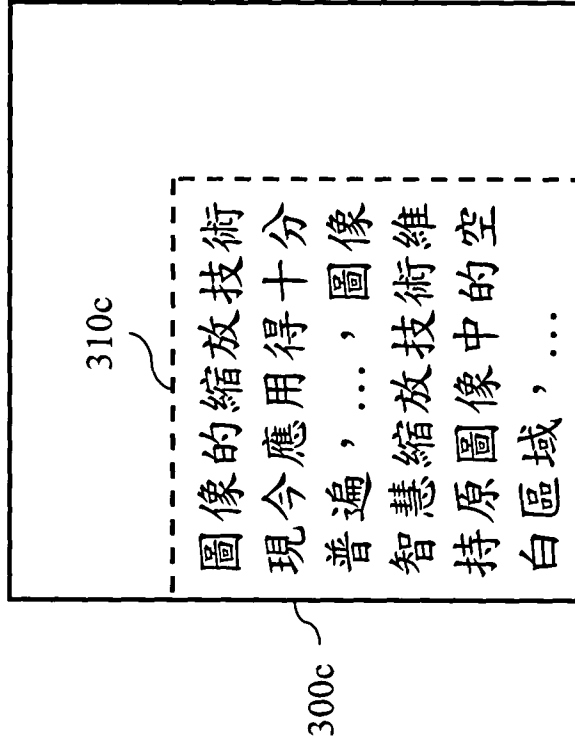 310c
圖像的縮放技術
現今應用得十分
普遍，…，圖像
智慧縮放技術維
持原圖像中的空
白區域，…
300c